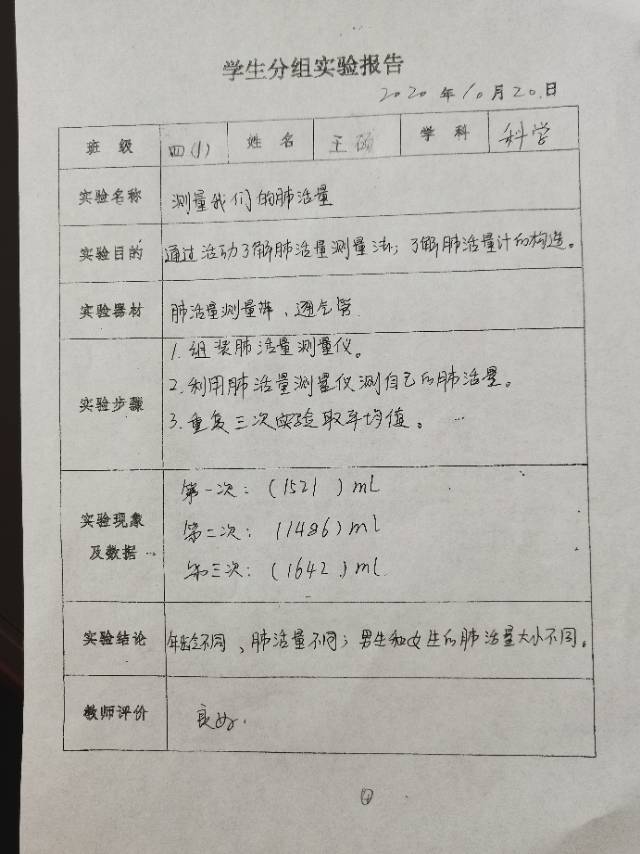 学生分组实验报告
2020年10月20日
班级 四(1) 姓名 王硕 学科 科学
实验名称 测量我们的肺活量
实验目的 通过活动了解肺活量测量法；了解肺活量计的构造。
实验器材 肺活量测量、通气管
1.组装肺活量测量仪。
实验步骤 2.利用肺活量测量仪测自己的肺活量。
3.重复三次实验取平均值。
第一次：(1521 )ml
实验现象及数据 第二次：(1486)ml
第三次：(1642 )ml
实验结论 年龄不同、肺活量不同；男生和女生的肺活量大小不同。
教师评价 良好.